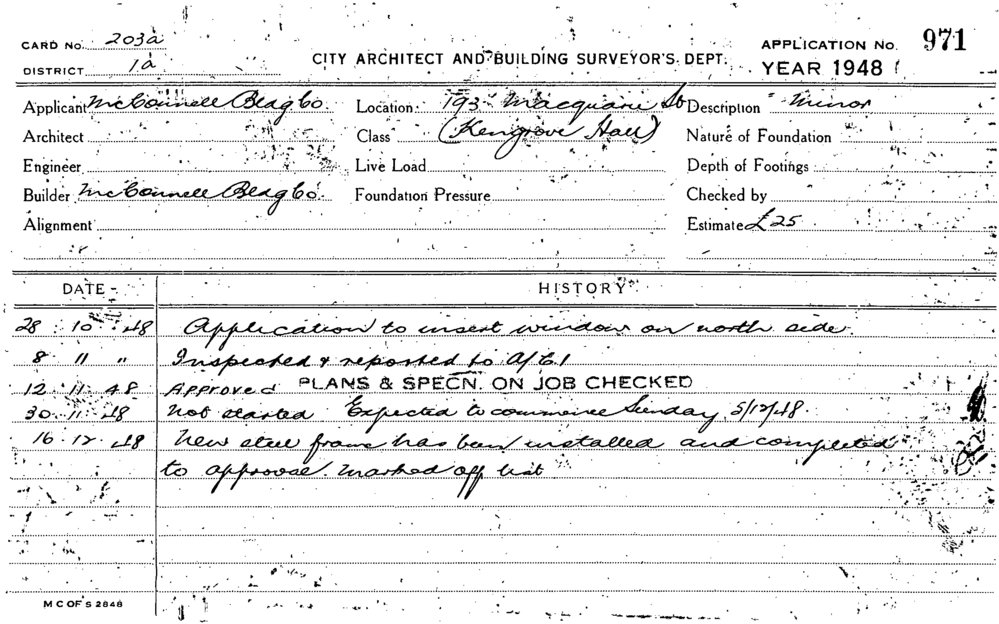 CARD No. 203a
APPLICATION No. 971
DISTRICT 1a
CITY ARCHITECT AND BUILDING SURVEYOR'S DEPT.
YEAR 1948
Applicant McConnell Bldg Co. Location 193 Macquarie St Description Minor
Architect Class (Kengrove Hall) Nature of Foundation
Engineer Live Load Depth of Footings
Builder McConnell Bldg Co. Foundation Pressure Checked by
Alignment Estimate £25
DATE HISTORY
28 . 10 . 48 Application to insert window on north side
8 11 " Inspected & reported to A/C.
12 . 11 . 48 Approved PLANS & SPECN. ON JOB CHECKED
30 . 11 . 48 Not started Expected to commence Sunday 5/12/48.
16 . 12 . 48 New steel frame has been installed and completed
to approval. Marked off list
M C OF S 2848